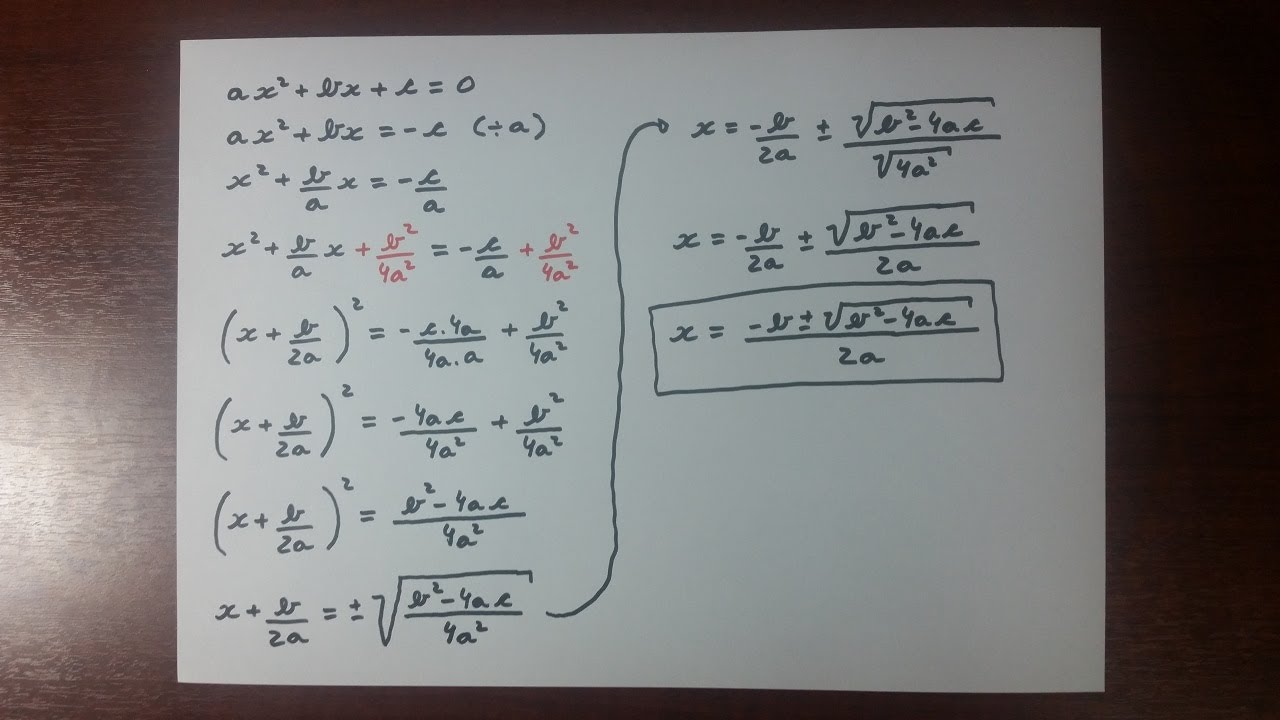 ax² + bx + c = 0
ax² + bx = -c (÷a)
x² + b/a x = -c/a
x² + b/a x + b²/4a² = -c/a + b²/4a²
(x + b/2a)² = -c.4a/4a.a + b²/4a²
(x + b/2a)² = -4ac/4a² + b²/4a²
(x + b/2a)² = b²-4ac/4a²
x + b/2a = ± √(b²-4ac/4a²)
x = -b/2a ± √(b²-4ac)/√(4a²)
x = -b/2a ± √(b²-4ac)/2a
x = -b±√(b²-4ac)/2a